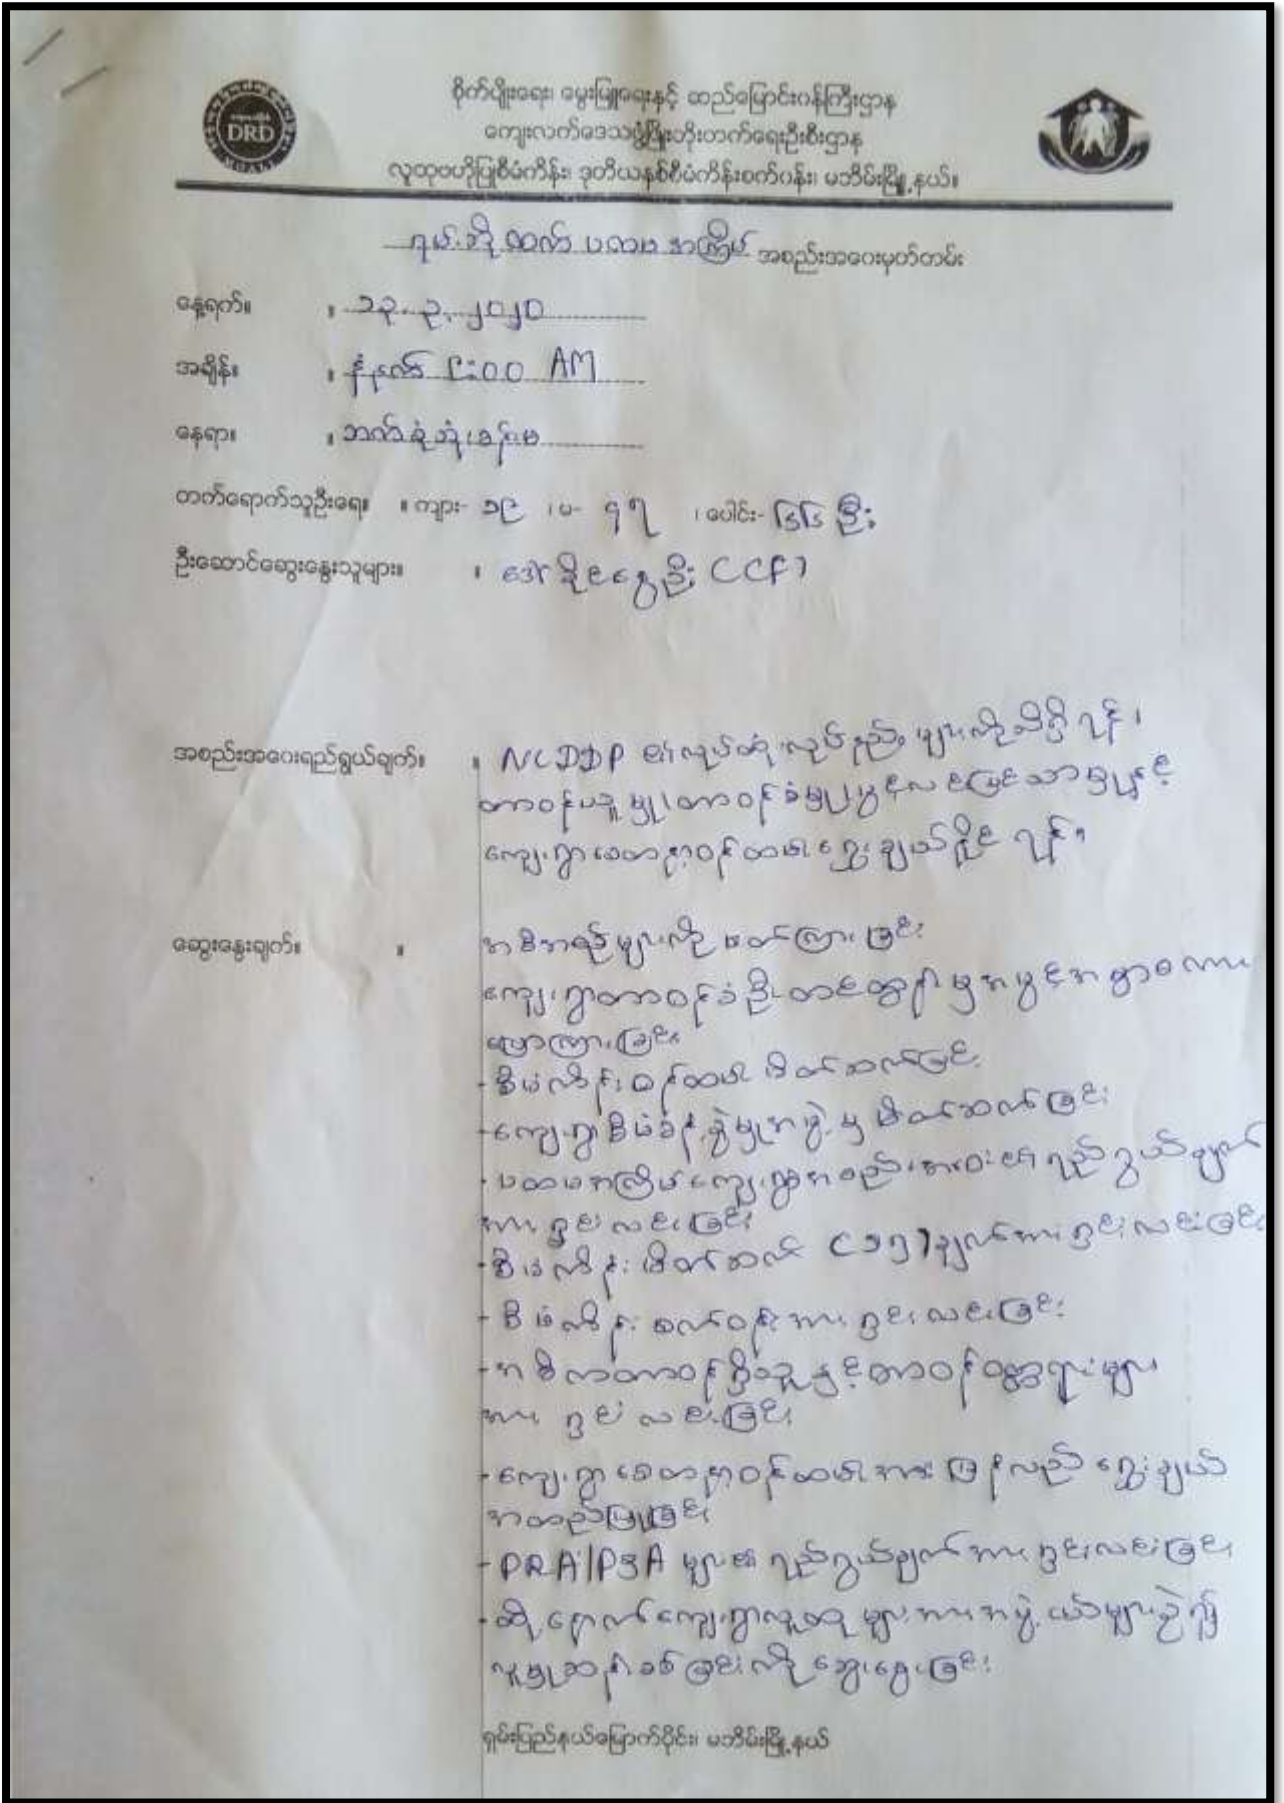 စိုက်ပျိုးရေး၊ မွေးမြူရေးနှင့် ဆည်မြောင်းဝန်ကြီးဌာန
DRD
ကျေးလက်ဒေသဖွံ့ဖြိုးတိုးတက်ရေးဦးစီးဌာန
လူထုဗဟိုပြုစီမံကိန်း၊ ဒုတိယနှစ်စီမံကိန်းစက်ဝန်း၊ မဘိမ်းမြို့နယ်။
ပထမအကြိမ် အစည်းအဝေးမှတ်တမ်း
နေ့ရက်။ ။ ၁၃.၃.၂၀၂၀
အချိန်။ ။ နံနက် ၉:၀၀ AM
နေရာ။ ။ ဘက်စုံသုံးခန်းမ
တက်ရောက်သူဦးရေ။ ။ ကျား- ၁၉ ၊ မ- ၄၇ ၊ ပေါင်း- ၆၆ ဦး
ဦးဆောင်ဆွေးနွေးသူများ။ ။ ဒေါ် ဦး CCF
အစည်းအဝေးရည်ရွယ်ချက်။ ။ NCDDP ၏လုပ်ထုံးလုပ်နည်းများကိုသိရှိရန်၊
တာဝန်ယူမှု၊ တာဝန်ခံမှု၊ ပွင့်လင်းမြင်သာမှုနှင့်
ကျေးရွာစေတနာ့ဝန်ထမ်းရွေးချယ်နိုင်ရန်။
ဆွေးနွေးချက်။ ။ အစီအစဉ်များကိုဖတ်ကြားခြင်း
ကျေးရွာတာဝန်ခံဦး မှအဖွင့်အမှာစကား
ပြောကြားခြင်း
- စီမံကိန်းဝန်ထမ်းမိတ်ဆက်ခြင်း
- ကျေးရွာစီမံခန့်ခွဲမှုအဖွဲ့မှ မိတ်ဆက်ခြင်း
- ပထမအကြိမ်ကျေးရွာအစည်းအဝေး၏ ရည်ရွယ်ချက်
အား ရှင်းလင်းခြင်း
- စီမံကိန်းမိတ်ဆက် (၁၅)ချက်အားရှင်းလင်းခြင်း
- စီမံကိန်း စက်ဝန်းအား ရှင်းလင်းခြင်း
- အဓိကတာဝန်ရှိသူနှင့်တာဝန်ဝတ္တရားများ
အား ရှင်းလင်းခြင်း
- ကျေးရွာစေတနာ့ဝန်ထမ်းအား ပြန်လည်ရွေးချယ်
အတည်ပြုခြင်း
- PRA/PSA များ၏ ရည်ရွယ်ချက်အား ရှင်းလင်းခြင်း
- ထို့နောက်ကျေးရွာလူထုများအားအဖွဲ့ငယ်များခွဲ၍
လူမှုဆန်းစစ်ခြင်းကို ဆွေးနွေးခြင်း
ရှမ်းပြည်နယ်မြောက်ပိုင်း၊ မဘိမ်းမြို့နယ်